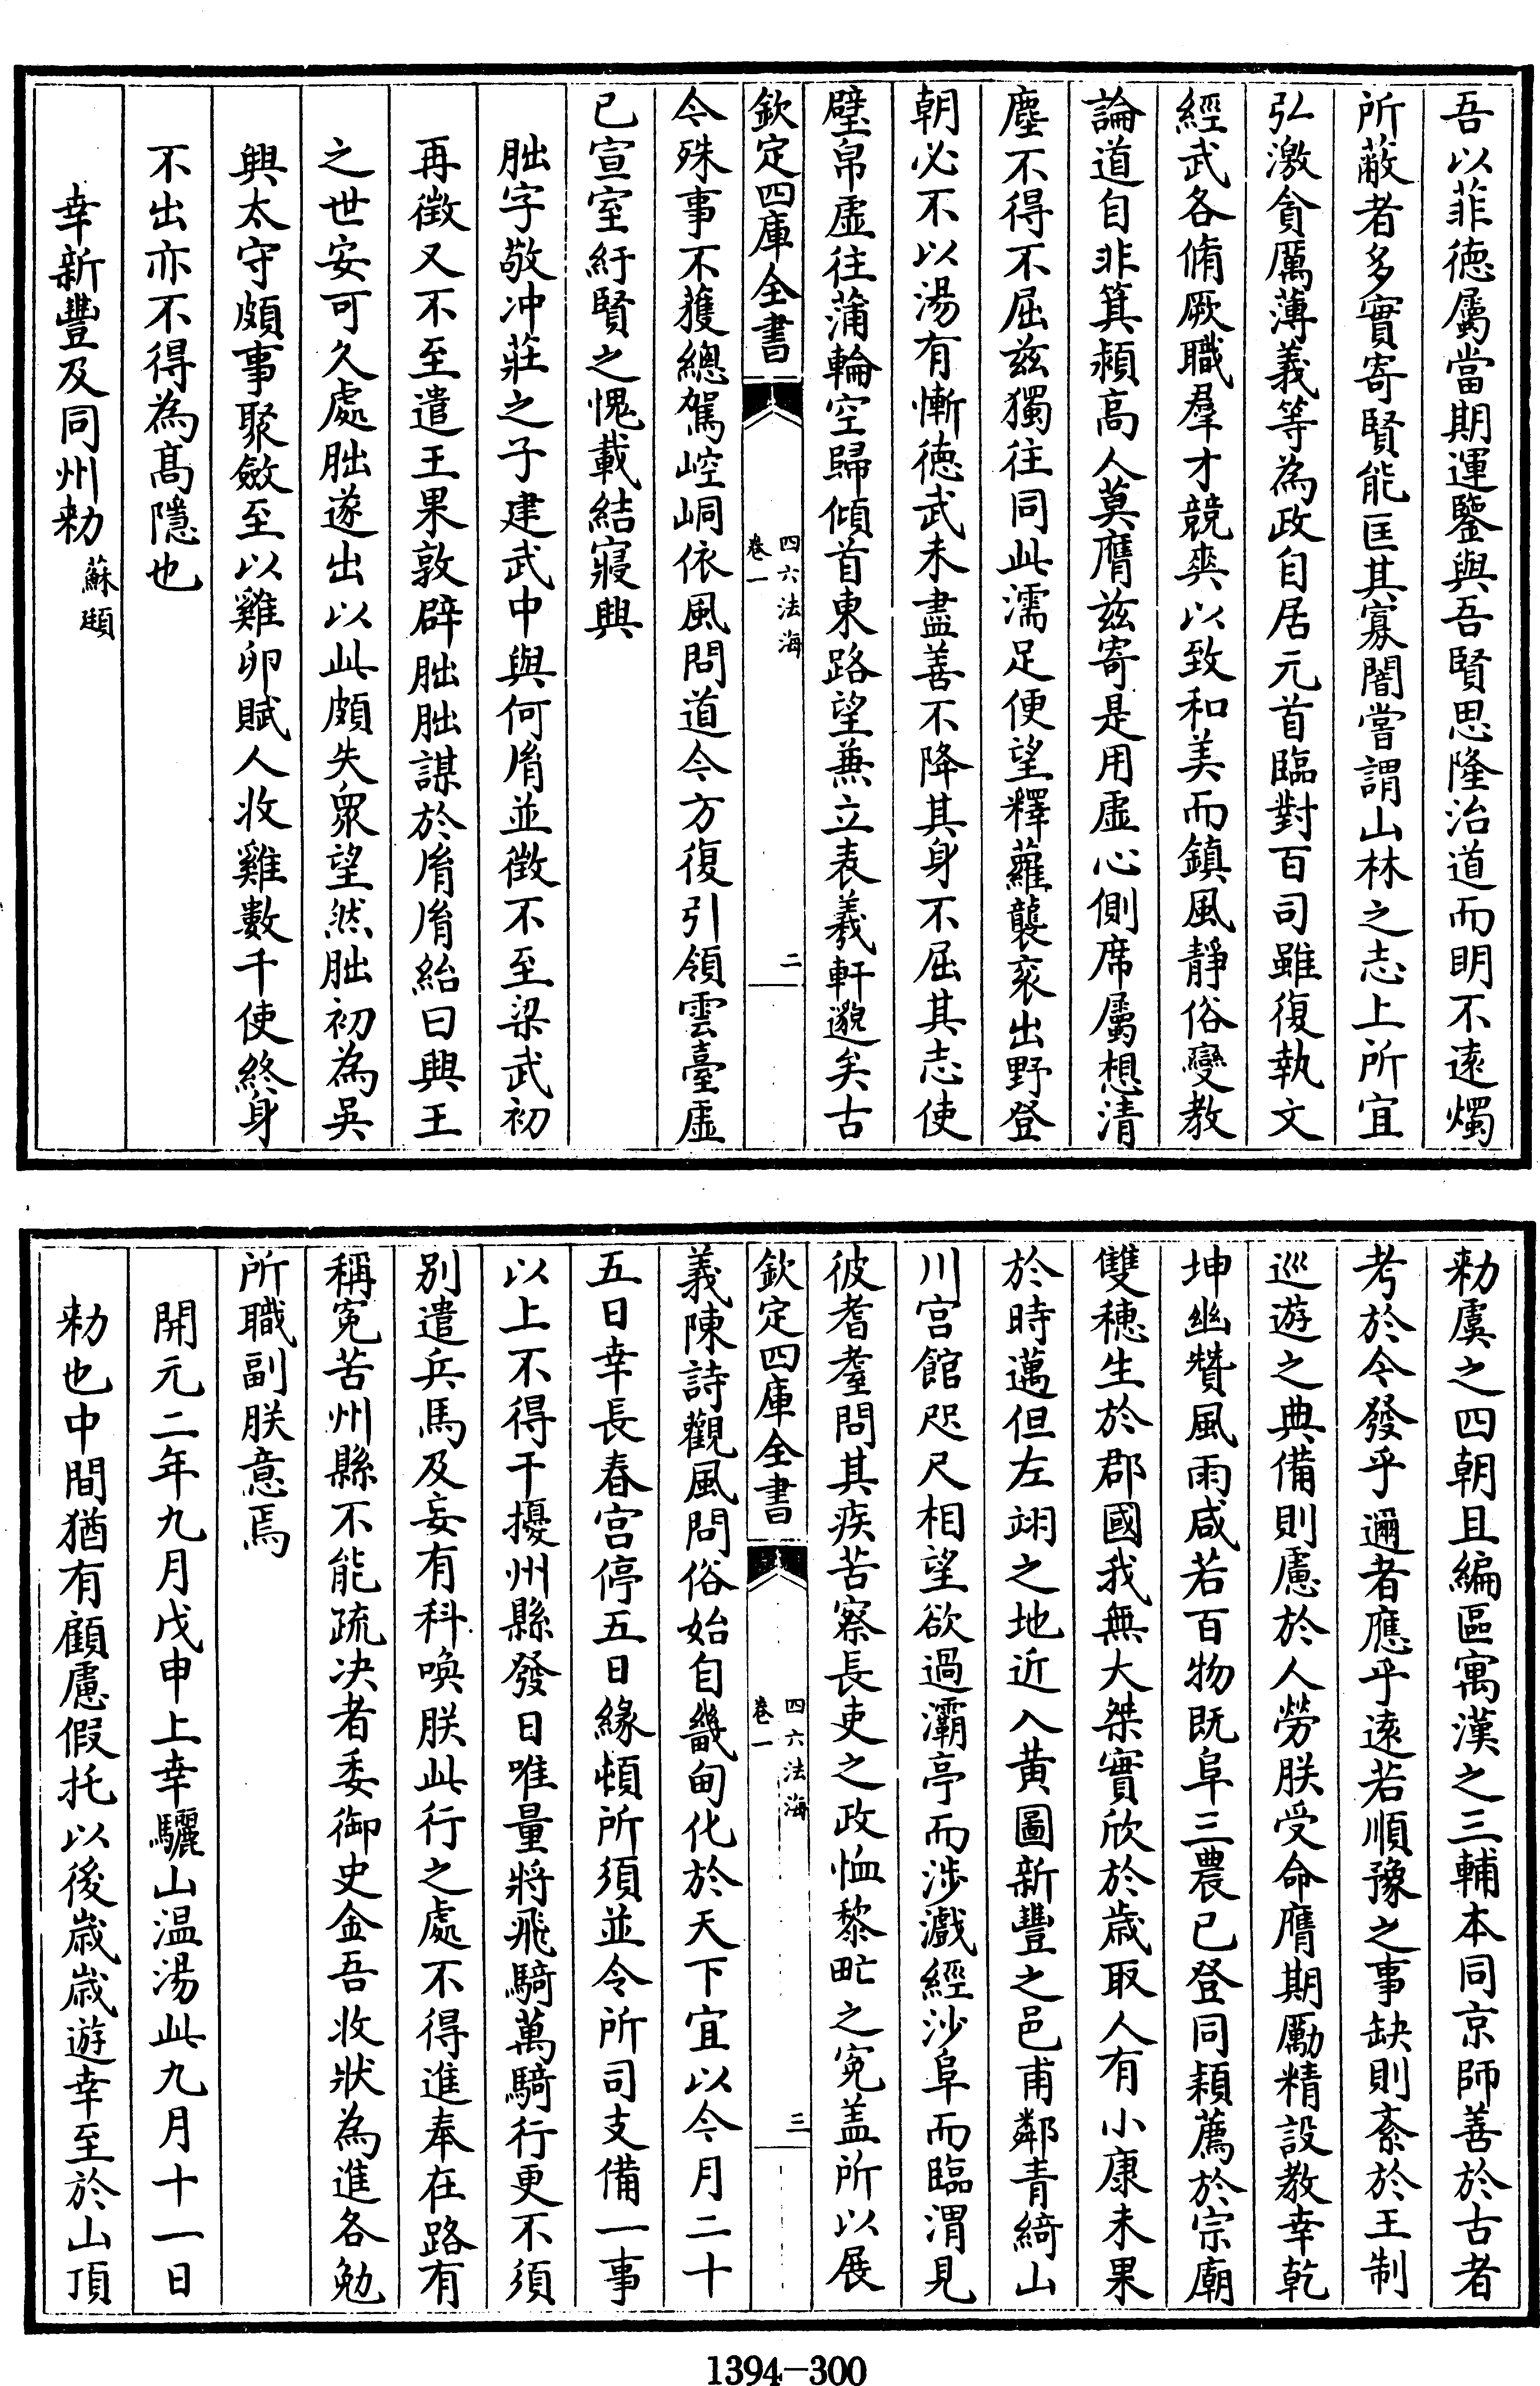 吾以菲德屬當期運鑒與吾賢思隆治道而明不逺燭
所蔽者多實寄賢能匡其寡闇嘗謂山林之志上所宜
弘激貪厲薄義等為政自居元首臨對百司雖復執文
經武各脩厥職羣才競爽以致和美而鎮風靜俗變教
論道自非箕潁高人莫膺兹寄是用虛心側席屬想清
塵不得不屈兹獨往同此濡足便望釋蘿襲衮出野登
朝必不以湯有慚徳武未盡善不降其身不屈其志使
璧帛虛往蒲輪空歸傾首東路望兼立表羲軒邈矣古
欽定四庫全書
四六法海
卷一
二
今殊事不獲總駕崆峒依風問道今方復引領雲臺虛
已宣室紆賢之愧載結寢興
朏字敬沖莊之子建武中與何胤並徴不至梁武初
再徴又不至遣王果敦辟朏朏謀於胤胤紿曰興王
之世安可久處朏遂出以此頗失衆望然朏初為吳
興太守頗事聚斂至以雞卵賦人收雞數千使終身
不出亦不得為髙隱也
幸新豐及同州勅
蘇頲
勅虞之四朝且編區寓漢之三輔本同京師善於古者
考於今發乎邇者應乎逺若順豫之事缺則紊於王制
巡遊之典備則慮於人勞朕受命膺期勵精設教幸乾
坤幽贊風雨咸若百物既阜三農已登同穎薦於宗廟
雙穗生於郡國我無大桀實欣於歳取人有小康未果
於時邁但左翊之地近入黃圖新豐之邑甫鄰青綺山
川宫館咫尺相望欲過灞亭而渉戲經沙阜而臨渭見
彼耆耋問其疾苦察長吏之政恤黎甿之寃盖所以展
欽定四庫全書
四六法海
卷一
三
義陳詩觀風問俗始自畿甸化於天下宜以今月二十
五日幸長春宫停五日緣頓所須並令所司支備一事
以上不得干擾州縣發日唯量將飛騎萬騎行更不須
别遣兵馬及妄有科喚朕此行之處不得進奉在路有
稱寃苦州縣不能疏決者委御史金吾收狀為進各勉
所職副朕意焉
開元二年九月戊申上幸驪山温湯此九月十一日
勅也中間猶有顧慮假托以後嵗嵗遊幸至於山頂
1394-300